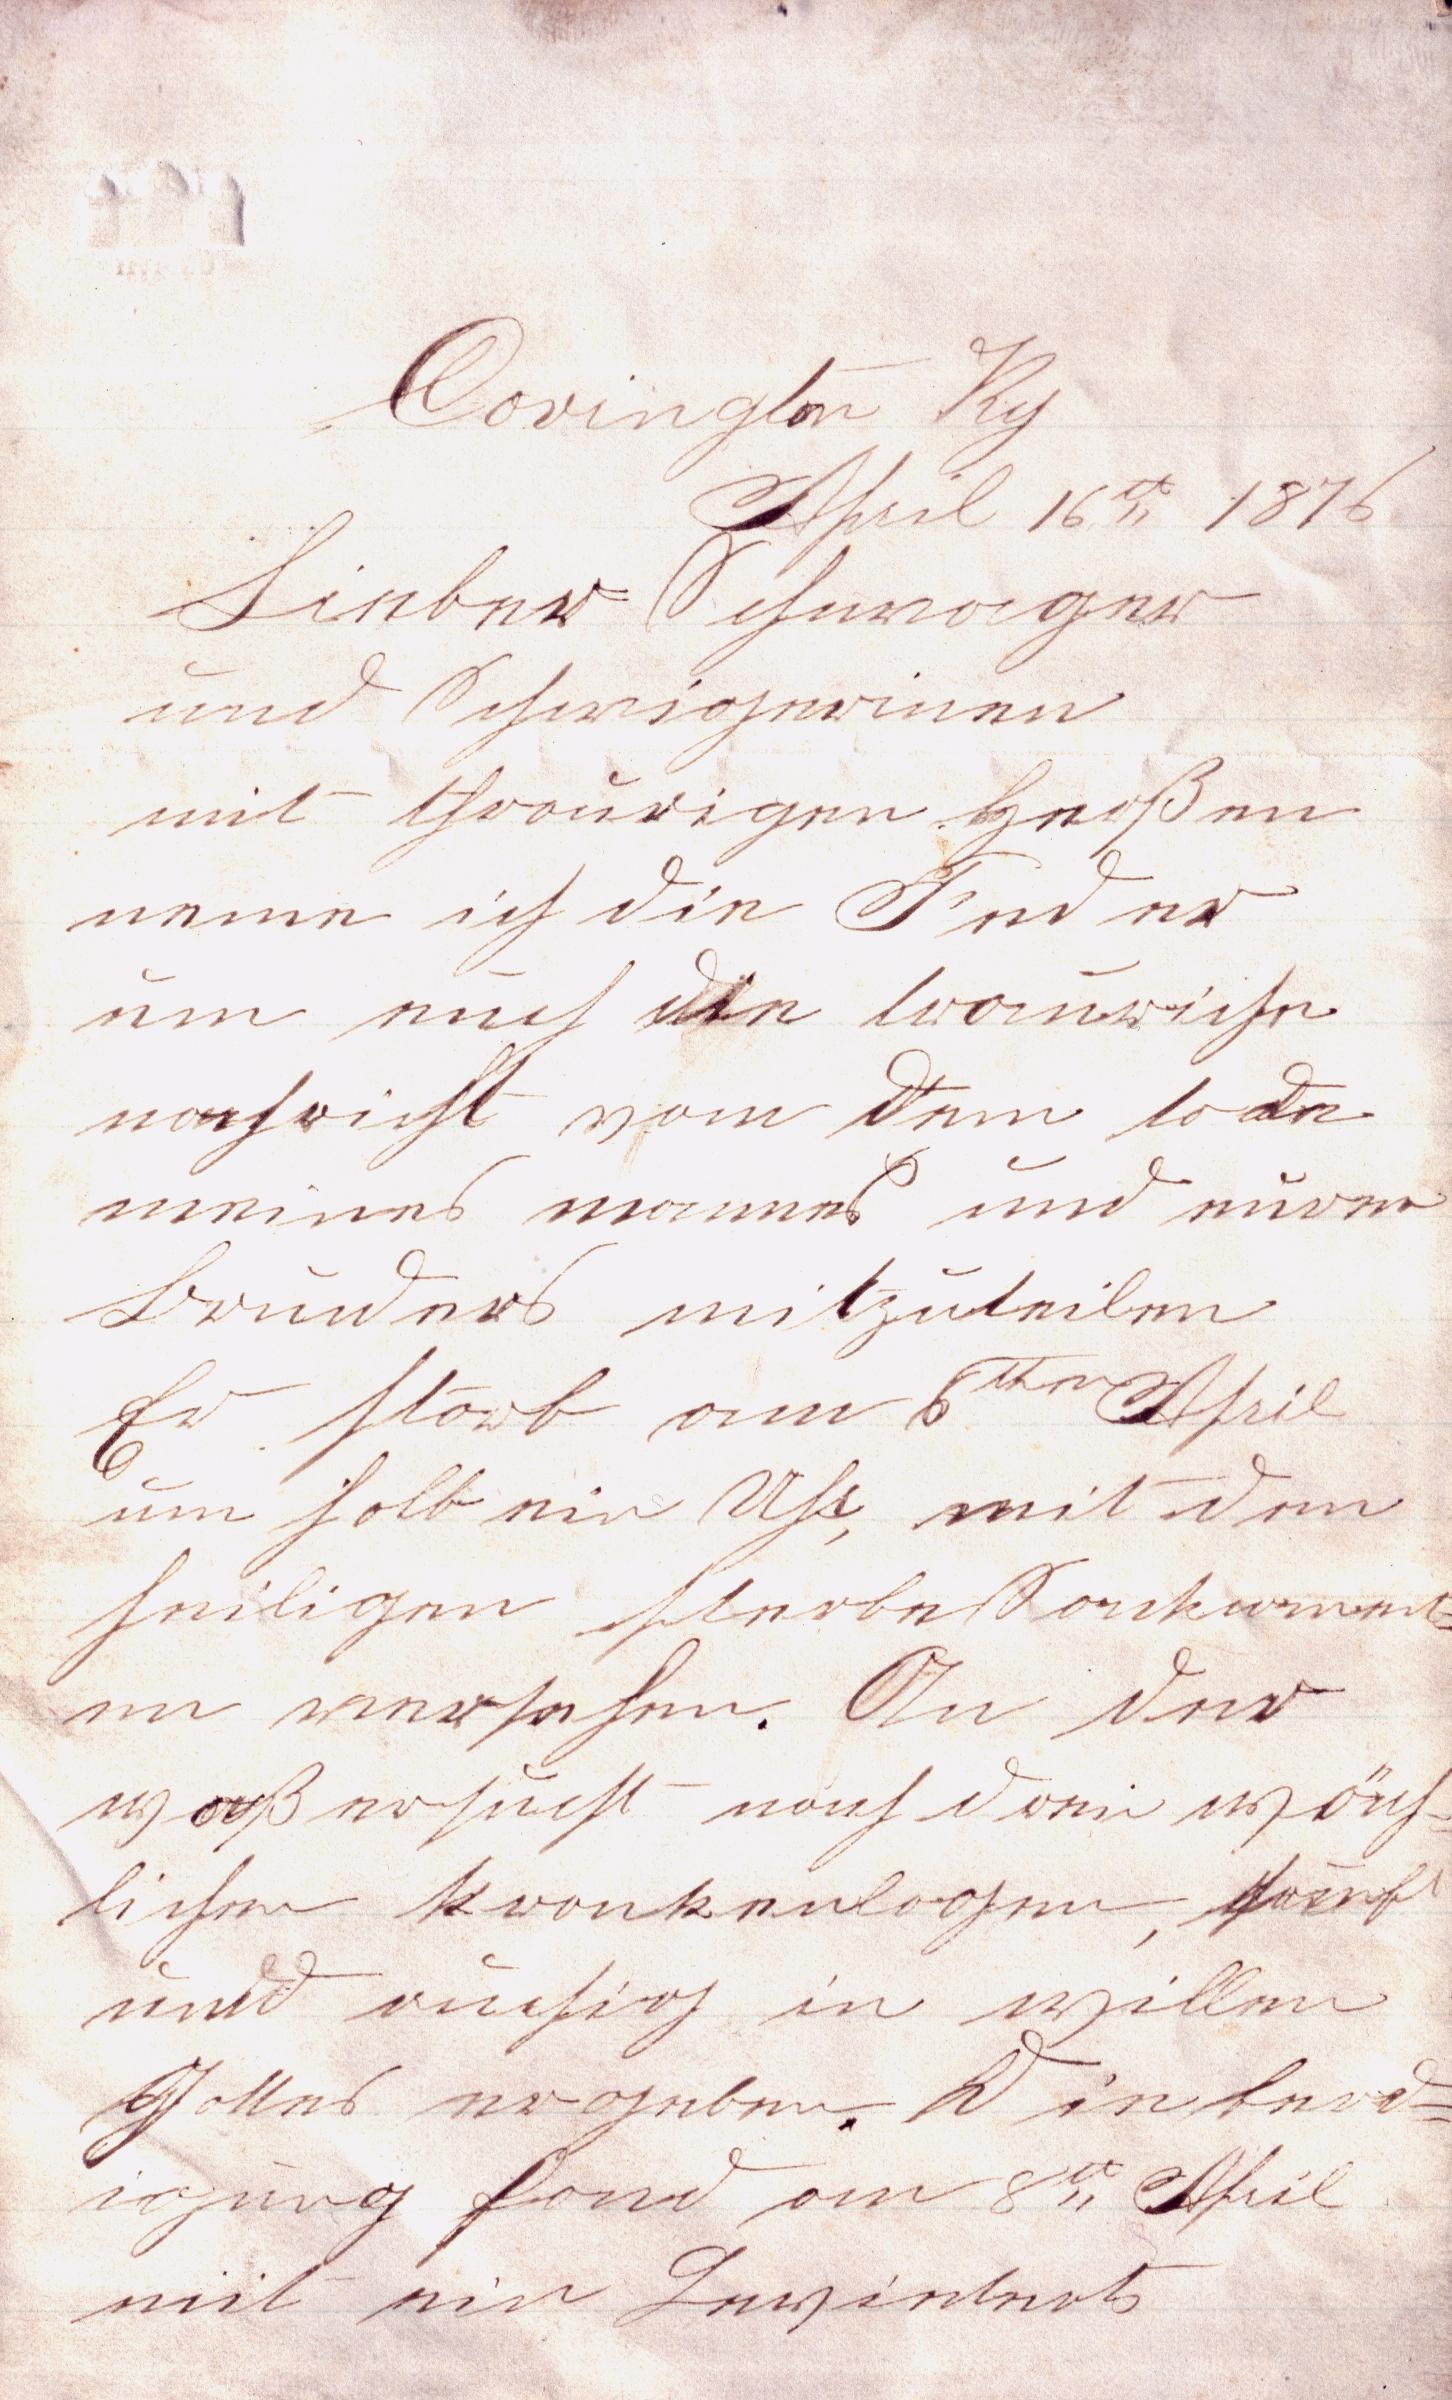 Covington Ky
April 16th 1876
Lieber Schwager
und Schwigerinen
mit thraurigen Herßen
neme ich die Feder
um euch die trauriche
nachricht vom dem tode
meines mannes und eures
Bruders mitzuteilen
Er starb am 6ten April
um halb ein Uhr, mit den
heiligen sterbe Sackrament=
en versehen. An der
waßersucht nach drei wöch=
lichen krankenlagen, sanft
und ruhig in willen
Gottes ergeben. Die berd=
igung fand am 8th April
mit ein Levinten